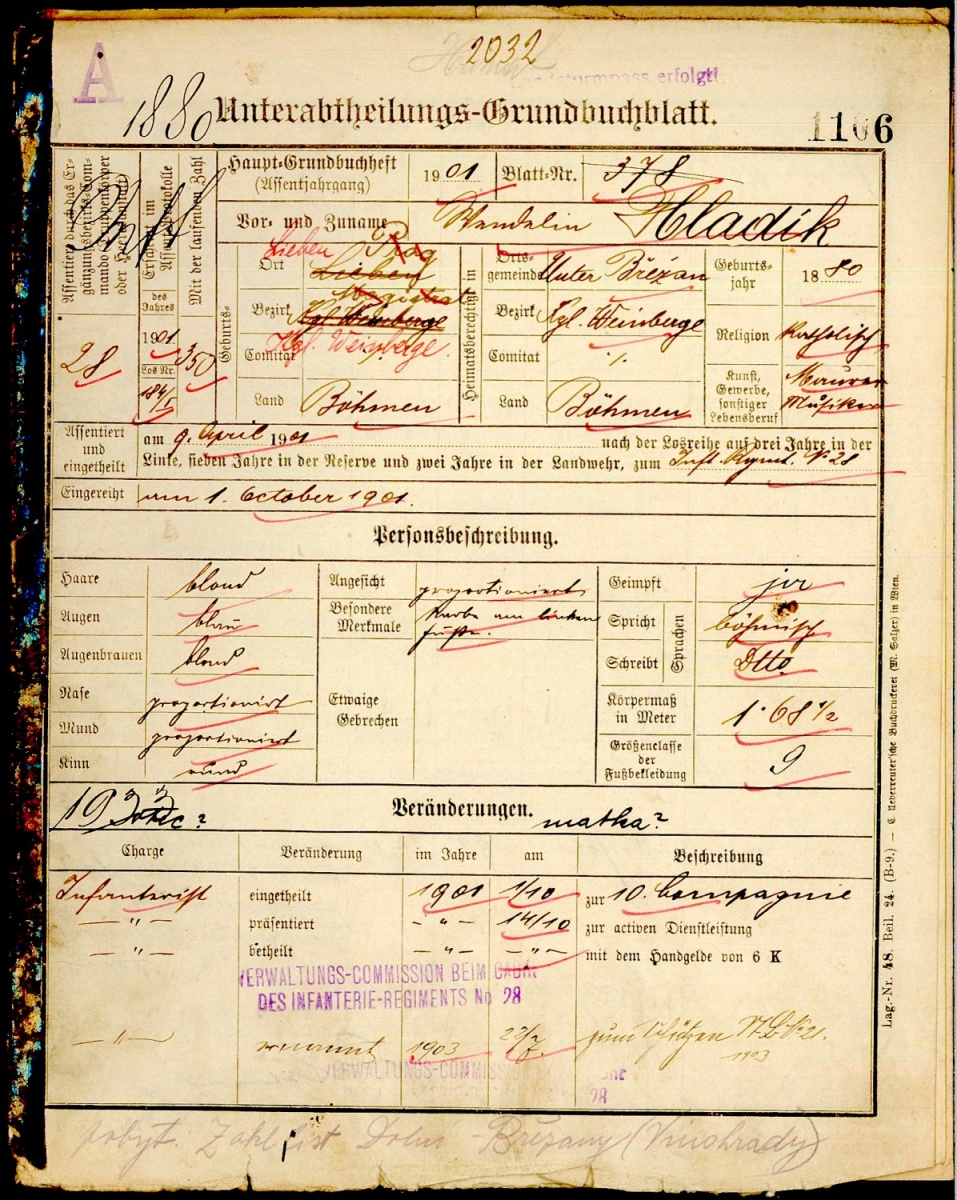 2032
A
erfolgt!
1880
Unterabtheilungs-Grundbuchblatt.
1106
Assentiert durch das Ergänzungsbezirks-Commando (Truppenkörper oder Heeresanstalt)
28
Erscheint im Assentprotokolle
des Jahres
1901
Los Nr.
184/I
Mit der laufenden Zahl
350
Haupt-Grundbuchheft
(Assentjahrgang)
1901
Blatt-Nr.
378
Vor- und Zuname
Wendelin Hladik
Geburts-
Ort
Lieben
Prag
Lieben
Bezirk
Magistrat
Kgl. Weinberge
Kgl. Weinberge.
Comitat
Land
Böhmen
Heimatsberechtigt in
Ortsgemeinde
Unter Břežan
Bezirk
Kgl. Weinberge
Comitat
·/.
Land
Böhmen
Geburtsjahr
1880
Religion
katholisch
Kunst, Gewerbe, sonstiger Lebensberuf
Maurer
Musiker
Assentiert und eingetheilt
am 9. April 1901 nach der Losreihe auf drei Jahre in der
Linie, sieben Jahre in der Reserve und zwei Jahre in der Landwehr, zum Inft. Rgmt. No 28
Eingereiht
am 1. October 1901.
Personsbeschreibung.
Haare
blond
Augen
blau
Augenbrauen
blond
Nase
proportionirt
Mund
proportionirt
Kinn
rund
Angesicht
proportionirt
Besondere Merkmale
Narbe am linken
Fuße.
Etwaige Gebrechen
Geimpft
ja
Spricht
Sprachen
böhmisch
Schreibt
Dtto
Körpermaß in Meter
1·68 1/2
Größenclasse der Fußbekleidung
9
1933
Veränderungen.
matka?
Charge
Veränderung
im Jahre
am
Beschreibung
Infanterist eingetheilt 1901 1/10 zur 10. Compagnie
— " — präsentiert — " — 14/10 zur activen Dienstleistung
— " — betheilt — " — — " — mit dem Handgelde von 6 K
VERWALTUNGS-COMMISSION BEIM CADRE
DES INFANTERIE-REGIMENTS No 28
— " — ernannt 1903 zum Schützen
VERWALTUNGS-COMMISS
28
pobyt: Dolní Břežany (Vinohrady)
Lag.-Nr. 48. Beil. 24. (B-9.) — C. Ueberreuter'sche Buchdruckerei (M. Salzer) in Wien.